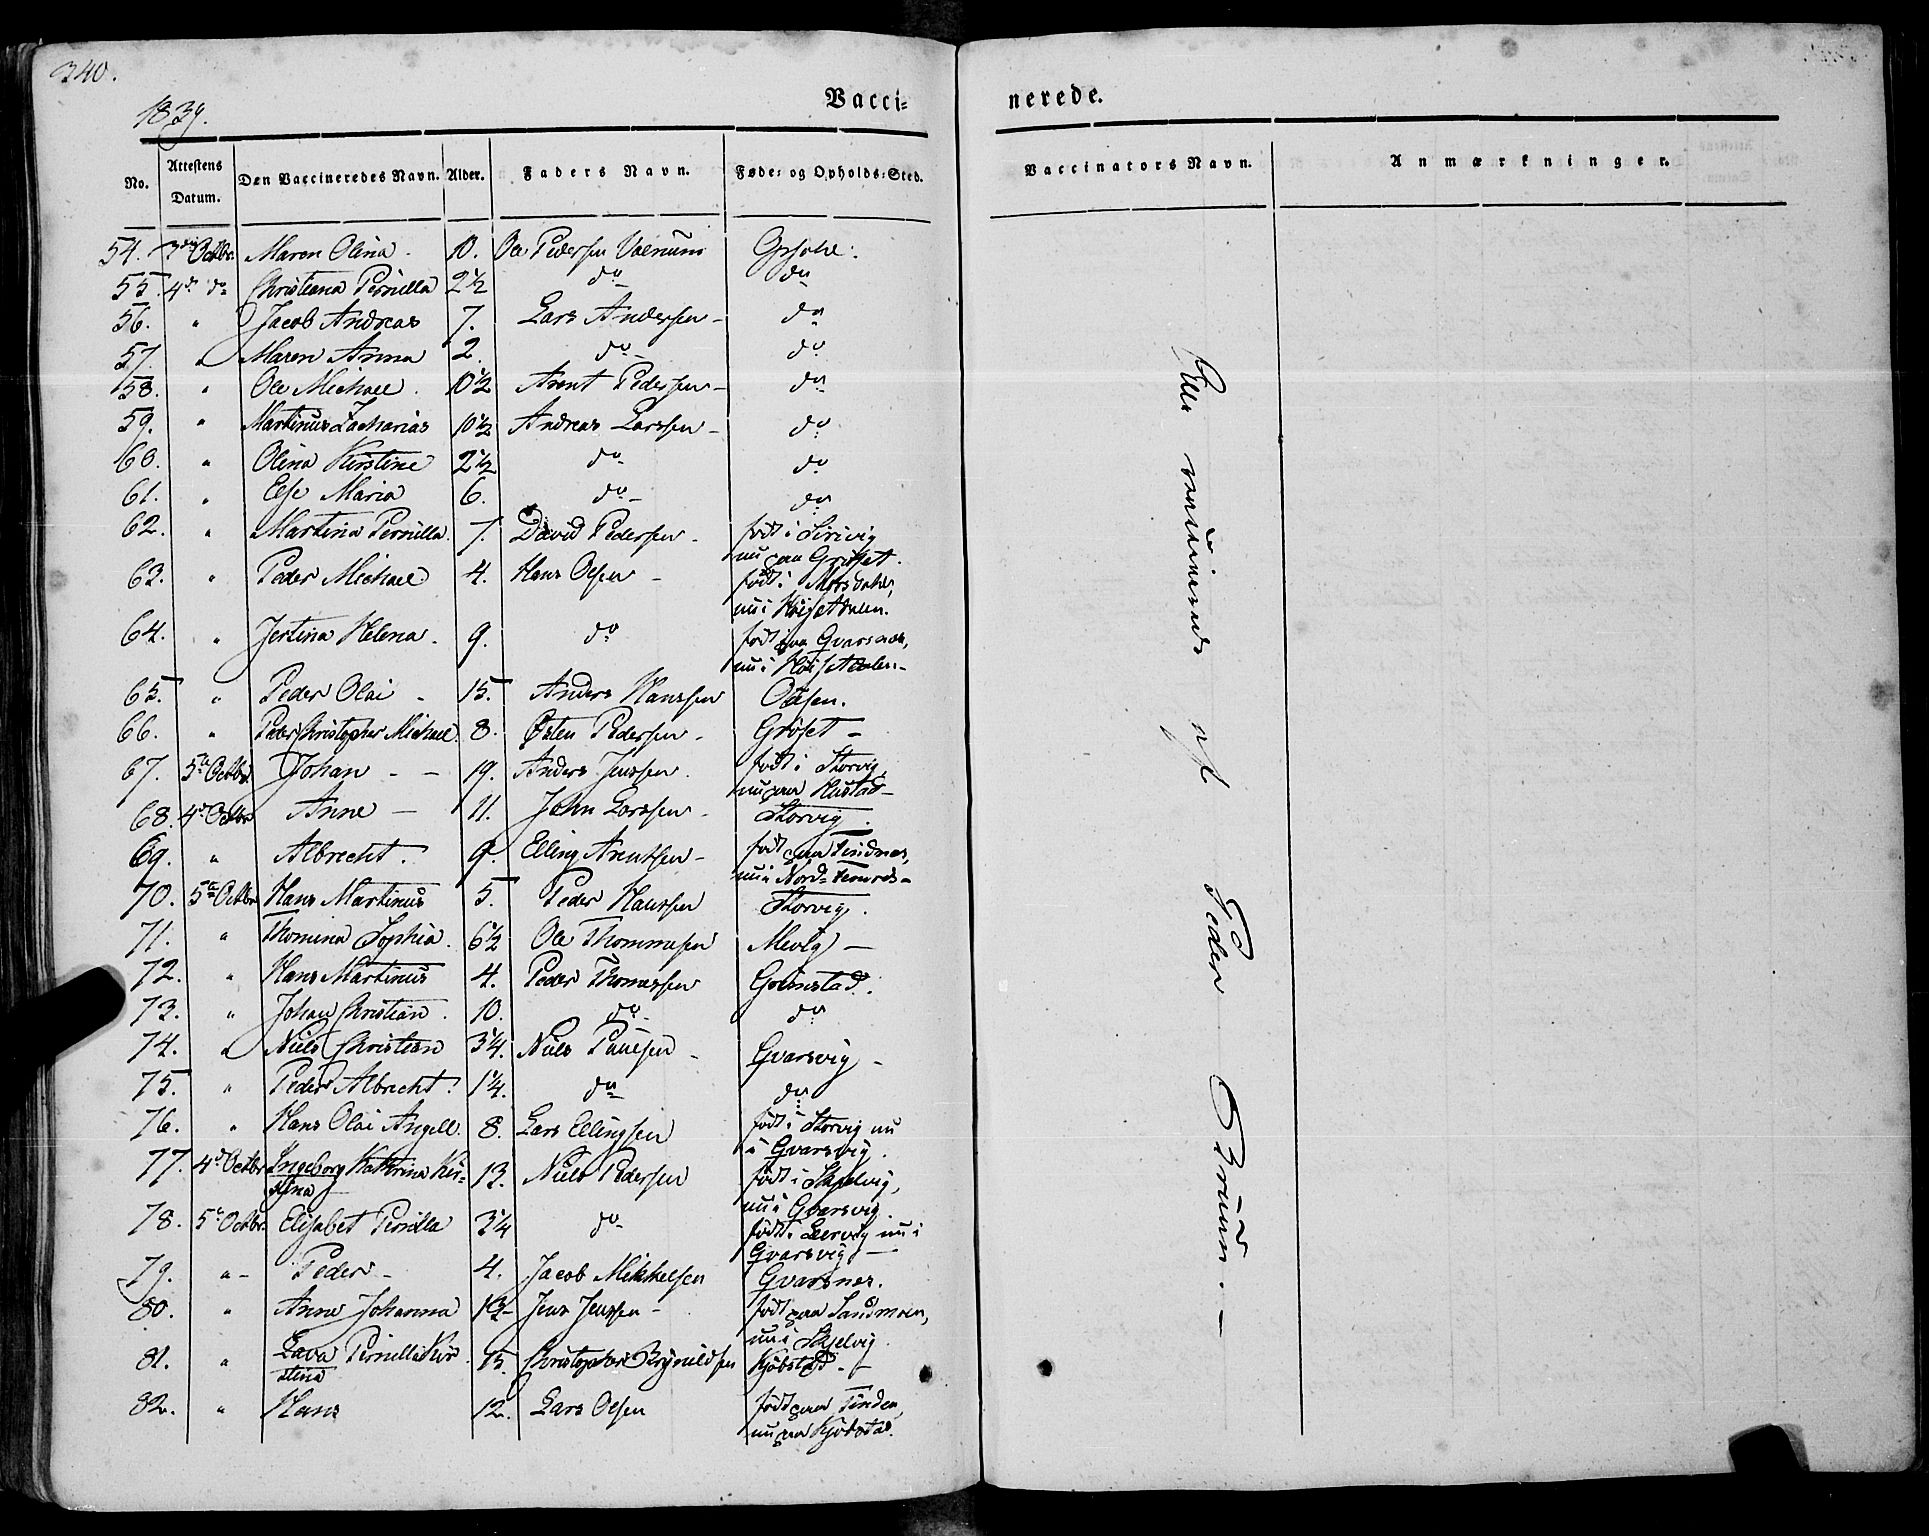 340.
1839.
Vacci= nerede.
No. Attestens Datum. Den Vaccineredes Navn. Alder. Faders Navn. Føde= og Opholds=Sted. Vaccinators Navn. Anmærkninger.
54. 3die Octbr. Maren Olina. 10. Ole Pedersen
55. 4de do Christiana Pernilla 2½ do do
56. " Jacob Andreas 7. Lars Andersen - do
57. " Maren Anna 2. do do
58. " Ole Michael. 10½ Arent Pedersen - do
59. " Martinus Zacharias 10½ Andreas Larssen - do
60. " Olina Kirstine 2½ do do
61. " Else Maria 6. do do
62. " Martina Pernilla. 7. David Pedersen - født i
nu paa Grøset.
63. " Peder Michael 4. Hans Olsen - født i
nu i
64. " Jertina Helena. 9. do født paa Gvarsnes,
nu i
65. " Peder Olai - 15. Anders Hanssen
66. " Peder Christopher Michael. 8. Østen Pedersen - Grøset -
67. 5te Octbr. Johan - - 19. Anders Jenssen. født i Storvig,
nu paa Hustad -
68. 4de Octbr Anne - 11. John Larssen - Storvig.
69. " Albrecht. 9. Elling Arentsen - født paa Tindnes,
nu i
70. 5te Octbr Hans Martinus 5. Peder Hanssen Storvig.
71. " Thomina Sophia. 6½ Ole Thommesen Mevig -
72. " Hans Martinus 4. Peder Thomessen Grimstad.
73. " Johan Christian. 10. do do
74. " Niels Christian 3¼. Niels Paulsen - Gvarsvig -
75. " Peder Albrecht. 1¼. do do
76. " Hans Olai Angell. 8. Lars Ellingsen født i Storvig nu
i Gvarsvig.
77. 4de Octbr Ingeborg Kathrina Kir=
stina 13. Niels Pedersen født i Skjelvig,
nu i Gvarsvig.
78. 5te Octbr. Elisabet Pernilla 3¼ do født i Leervig nu i
Gvarsvig -
79. " - Peder - 4. Jacob Mikkelsen Gvarsnes.
80. " Anne Johanna 13 - Jens Jenssen - født paa Sandmoen,
nu i Skjelvig.
81. " Lava Pernilla Kir=
stina 15. Christopher Brynildsen Kjøbstad - -
82. " Hans 12. Lars Olsen født paa Tinden,
nu paa Kjøbstad.
Alle vaccinerede af Peder Bruun. -